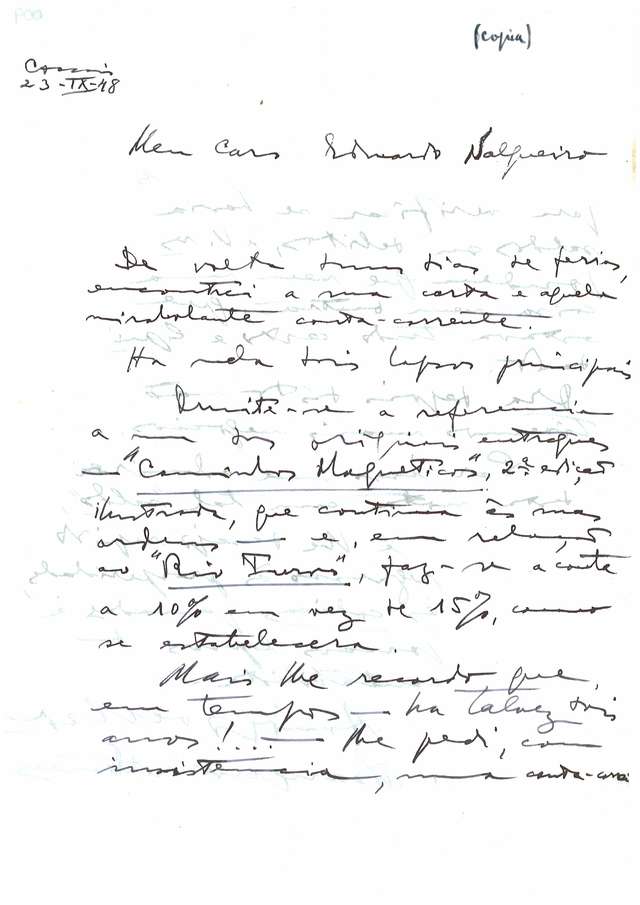 (copia)
23-IX-48
Meu caro Eduardo Salgueiro
De volta duns dias de ferias,
encontrei a sua carta e aquela
mirabolante conta-corrente.
Ha nela dois lapsos principais
Omite-se a referencia
a um dos originais entregues
— "Caminhos Magneticos", 2ª edição
ilustrada, que continua às suas
ordens — e, em relação
ao "Rio Turvo", faz-se a conta
a 10% em vez de 15%, como
se estabelecera.
Mais lhe recordo que,
em tempos — ha talvez dois
anos!... — lhe pedi, com
insistencia, uma conta-corre